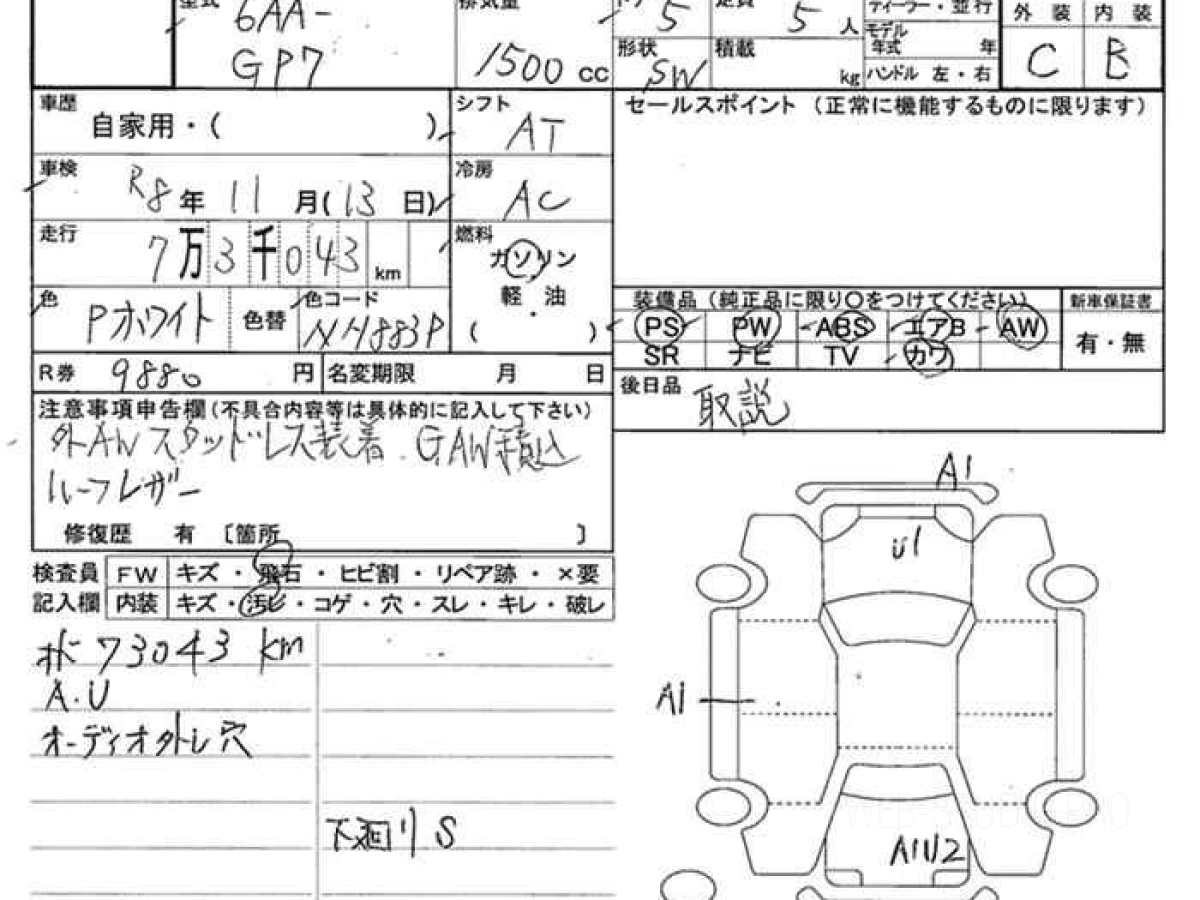 型式 6AA-
GP7
排気量
1500 cc
ドア 5
形状 SW
定員 5 人
積載 kg
ディーラー・並行
モデル年式 年
ハンドル 左・右
外装 内装
C B
車歴
自家用・( )
シフト AT
車検 R8年 11月(13日)
冷房 AC
走行 7万3千043 km
燃料 ガソリン
軽油
( )
色 Pホワイト
色替
色コード NH883P
R券 9880円
名変期限 月 日
セールスポイント (正常に機能するものに限ります)
装備品(純正品に限り○をつけてください)
PS PW ABS エアB AW
SR ナビ TV カワ
新車保証書
有・無
後日品 取説
注意事項申告欄(不具合内容等は具体的に記入して下さい)
外AWスタッドレス装着.GAW積込
ハーフレザー
修復歴 有 [箇所 ]
検査員記入欄
FW キズ・飛石・ヒビ割・リペア跡・×要
内装 キズ・汚レ・コゲ・穴・スレ・キレ・破レ
ホド 73043 km
A.U
オーディオ外レ穴
下廻りS
A1
U1
A1
A1U2